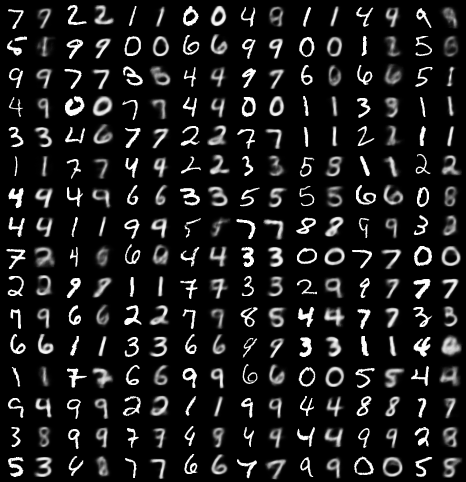 7 9 2 2 1 1 0 0 4 8 1 1 4 4 9 9
5 9 9 0 0 6 6 9 9 0 0 1 5 6
9 9 7 7 3 5 4 4 9 7 6 0 6 6 5 1
4 9 0 0 7 7 4 4 0 0 1 1 3 9 1 1
3 3 4 6 7 7 2 2 7 7 1 1 2 2 1 1
1 1 7 7 4 9 2 2 3 3 5 8 1 1 2 2
4 9 4 9 6 6 3 3 5 5 5 5 6 6 0 8
4 4 1 1 9 9 5 7 7 8 8 9 9 3 8
7 2 4 6 6 4 4 3 3 0 0 7 7 0 0
2 2 9 8 1 1 7 7 3 3 2 9 9 9 7 7
7 9 6 6 2 2 7 9 8 5 4 4 7 7 3 3
6 6 1 1 3 3 6 6 9 9 3 3 1 1 4 4
1 1 7 7 6 6 9 9 6 6 0 0 5 5 4 4
9 4 9 9 2 2 1 1 9 9 4 4 8 8 7 7
3 8 9 9 7 7 9 9 4 9 4 4 9 9 2 8
5 3 4 8 7 7 6 6 7 7 9 9 0 0 5 8